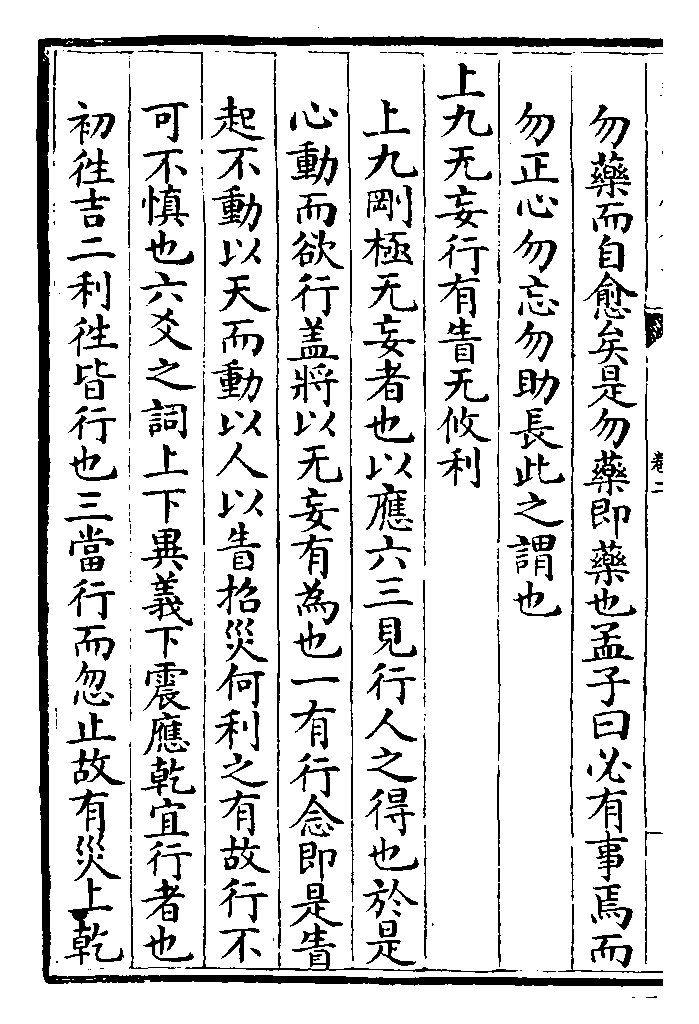 勿藥而自愈矣是勿藥即藥也孟子曰必有事焉而
勿正心勿忘勿助長此之謂也
上九无妄行有眚无攸利
上九剛極无妄者也以應六三見行人之得也於是
心動而欲行盖將以无妄有為也一有行念即是眚
起不動以天而動以人以眚招災何利之有故行不
可不慎也六爻之詞上下異義下震應乾宜行者也
初徃吉二利徃皆行也三當行而忽止故有災上乾
卷二